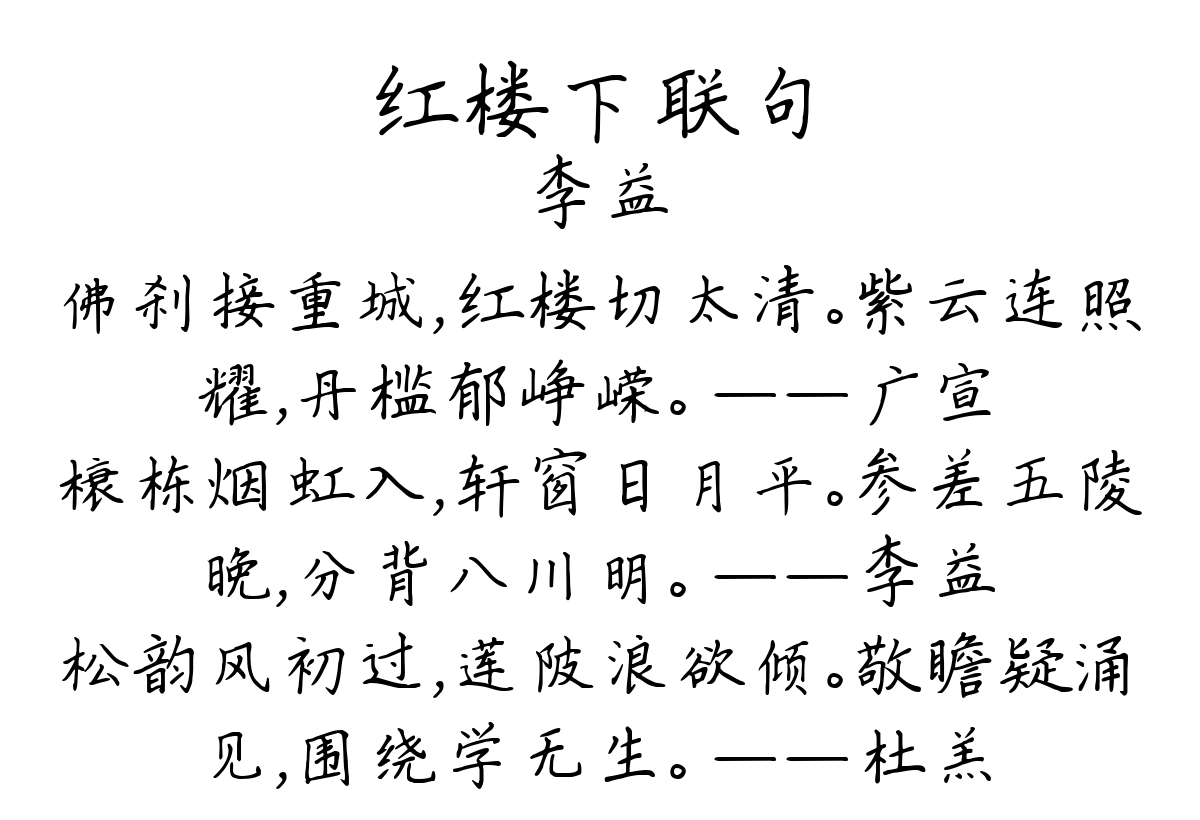 红楼下联句
李益
佛刹接重城,红楼切太清。紫云连照
耀,丹槛郁峥嵘。——广宣
榱栋烟虹入,轩窗日月平。参差五陵
晚,分背八川明。——李益
松韵风初过,莲陂浪欲倾。敬瞻疑涌
见,围绕学无生。——杜羔